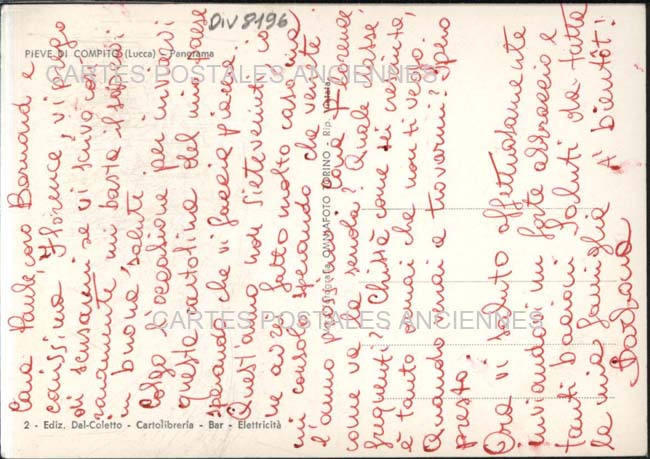 DIV 8196
PIEVE DI COMPITO (Lucca) - Panorama
CARTES POSTALES ANCIENNES
Cara Paule, caro Bernard e
carissima Florence, vi prego
di scusarmi se vi scrivo così
raramente, mi basta il sapervi
in buona salute.
Colgo l'occasione per inviarvi
questa cartolina del mio paese
sperando che vi faccia piacere.
Quest'anno non siete venuti, io
ne avrei fatto molto caso ma
mi consolo sperando che verrete
l'anno prossimo. Cara Florence
come va la scuola? Quale classe
frequenti? Chissà come sei cresciuta,
è tanto ormai che non ti vedo.
Quando vieni a trovarmi? Spero
presto.
Ora vi saluto affettuosamente
inviandovi un forte abbraccio e
tanti bacioni. Saluti da tutta
la mia famiglia A bientôt!
Barbara
OMNIAFOTO TORINO - Rip. Vietata
CARTES POSTALES ANCIENNES
2 - Ediz. Dal-Coletto - Cartolibreria - Bar - Elettricità